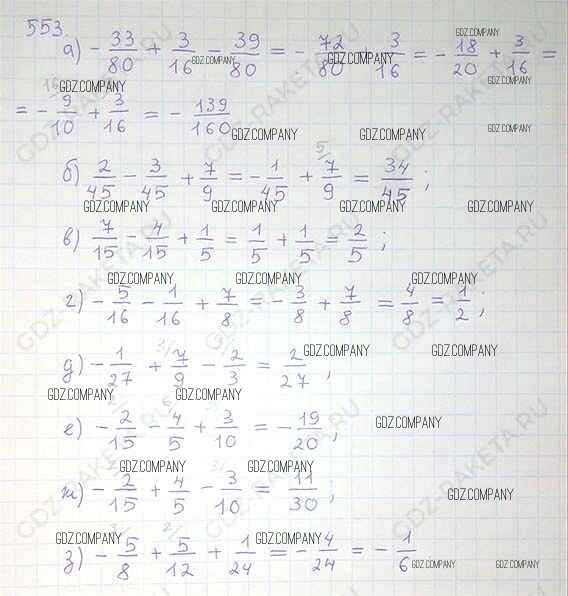 553.
а) - 33/80 + 3/16 - 39/80 = - 72/80 + 3/16 = - 18/20 + 3/16 =
= - 9/10 + 3/16 = - 139/160
б) 2/45 - 3/45 + 7/9 = - 1/45 + 7/9 = 34/45 ;
в) 7/15 - 4/15 + 1/5 = 1/5 + 1/5 = 2/5 ;
г) - 5/16 - 1/16 + 7/8 = - 3/8 + 7/8 = 4/8 = 1/2 ;
д) - 1/27 + 7/9 - 2/3 = 2/27 ;
е) - 2/15 - 4/5 + 3/10 = - 19/20 ;
ж) - 2/15 + 4/5 - 3/10 = 11/30 ;
з) - 5/8 + 5/12 + 1/24 = - 4/24 = - 1/6
GDZ.COMPANY
GDZ-RAKETA.RU